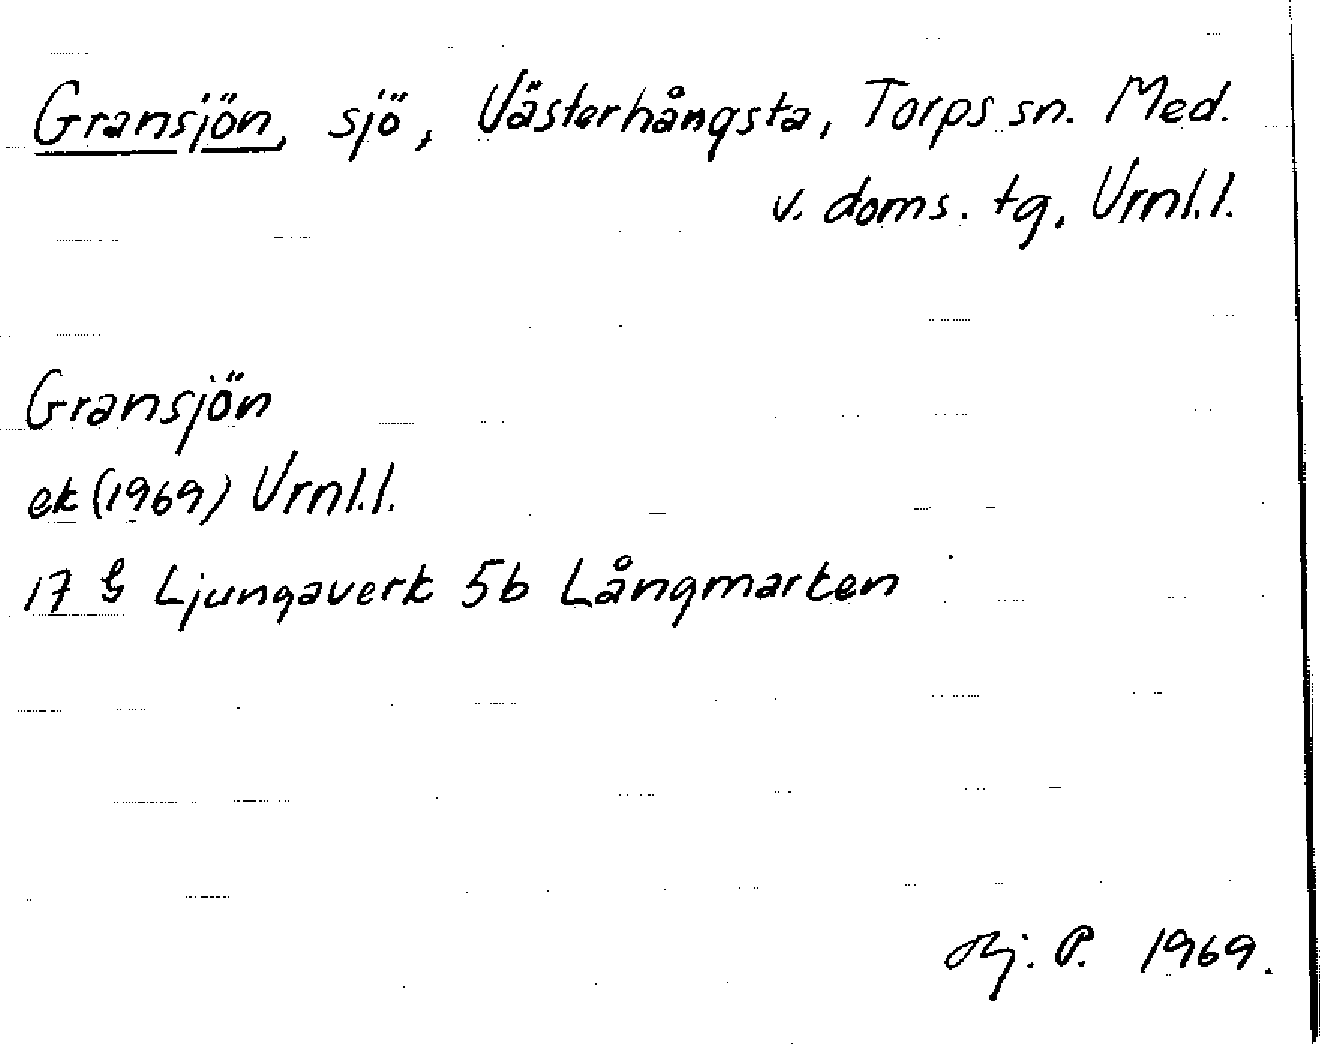 Gransjön, sjö, Västerhångsta, Torps sn. Med.
v. doms. tg. Vrnl.l.
Gransjön
ek (1969) Vrnl.l.
17 G Ljungaverk 5b Långmarken
Hj. P. 1969.